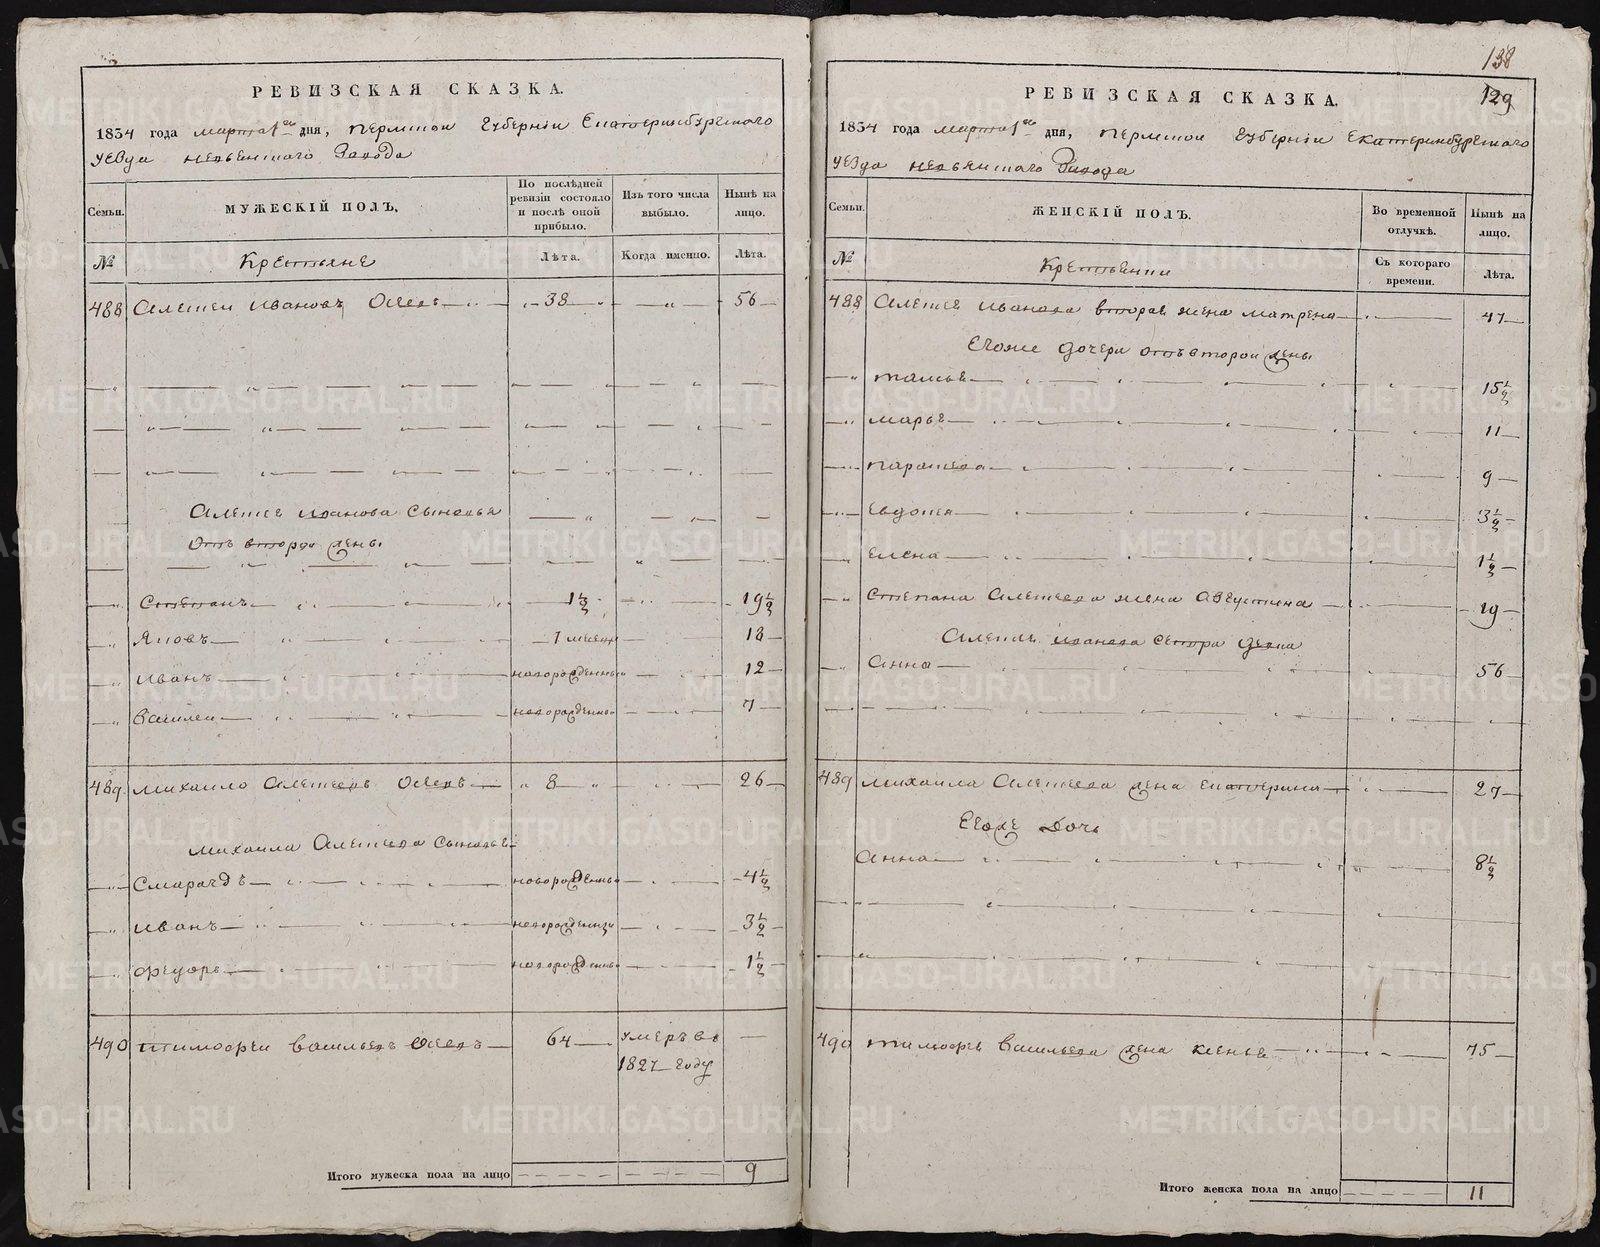 РЕВИЗСКАЯ СКАЗКА.
1834 года марта 1го дня, Пермской губерніи Екатеринбургского
уезда невьянского завода
Семьи.
МУЖЕСКІЙ ПОЛЪ.
По послѣдней ревизіи состояло и послѣ оной прибыло.
Изъ того числа выбыло.
Нынѣ на лицо.
№
Крестьяне
Лѣта.
Когда именно.
Лѣта.
488 Алексеи Ивановъ 38 56
Алексея Иванова сыновья
отъ второи жены
Степанъ 1½ 19½
Яковъ 18
Иванъ новорожденныи 12
Василеи новорожденныи 7
489 Михаило Алексеевъ 8 26
Михаила Алексеева сыновья
Смарагдъ новорожденныи 4½
Иванъ новорожденныи 3½
Федоръ новорожденныи 1½
490 Тимофеи Васильевъ 64 умеръ въ
1827 году
Итого мужеска пола на лицо 9
138
129
РЕВИЗСКАЯ СКАЗКА.
1834 года марта 1го дня, Пермской губерніи Екатеринбургского
уезда невьянского завода
Семьи.
ЖЕНСКІЙ ПОЛЪ.
Во временной отлучкѣ.
Нынѣ на лицо.
№
Крестьянки
Съ котораго времени.
Лѣта.
488 Алексея Иванова вторая жена Матрена 47
Егоже дочери отъ второи жены
Таисья 15½
Марья 11
Парасковья 9
Евдокея 3½
Елена 1½
Степана Алексеева жена Августина 19
Алексея Иванова сестра девка
Анна 56
489 Михаила Алексеева жена Екатерина 27
Егоже дочь
Анна 8½
490 Тимофея Васильева жена Ксенья 75
Итого женска пола на лицо 11
METRIKI.GASO-URAL.RU